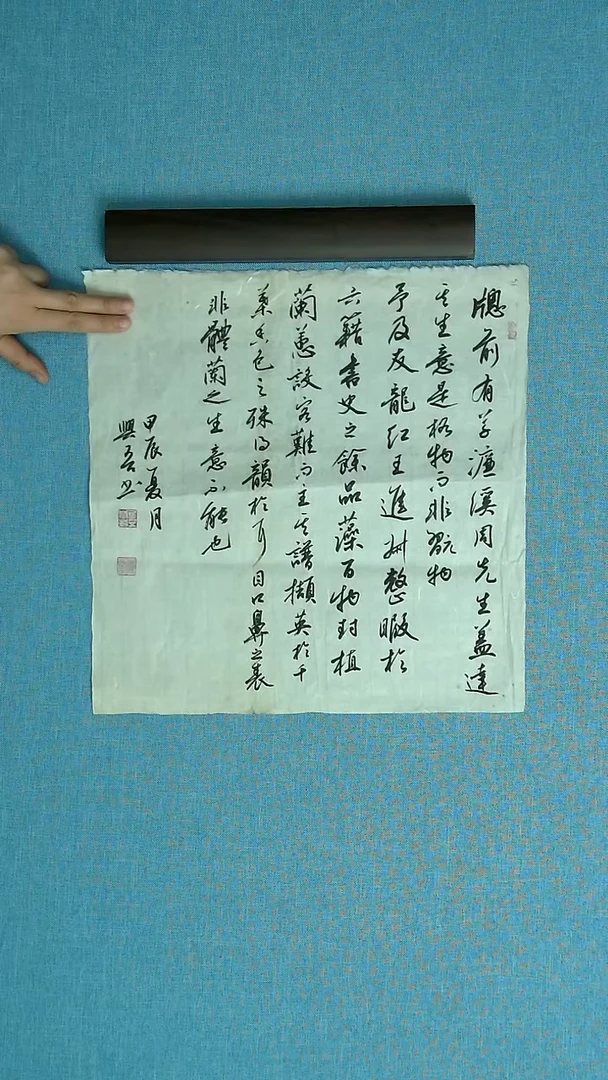 牕前有草濂溪周先生蓋達
其生意是格物而非翫物
予及友龍江王進叔整暇於
六籍書史之餘品藻百物封植
蘭蕙設客難而主其譜擷英於千
葉香色之殊得韻於耳目口鼻之表
非體蘭之生意不能也
甲辰夏月
興吾书